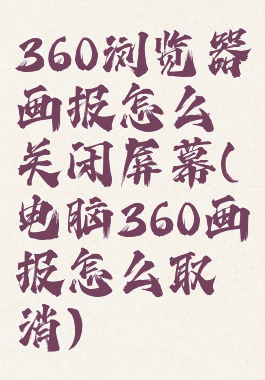 360浏览器
画报怎么
关闭屏幕(
电脑360画
报怎么取
消)